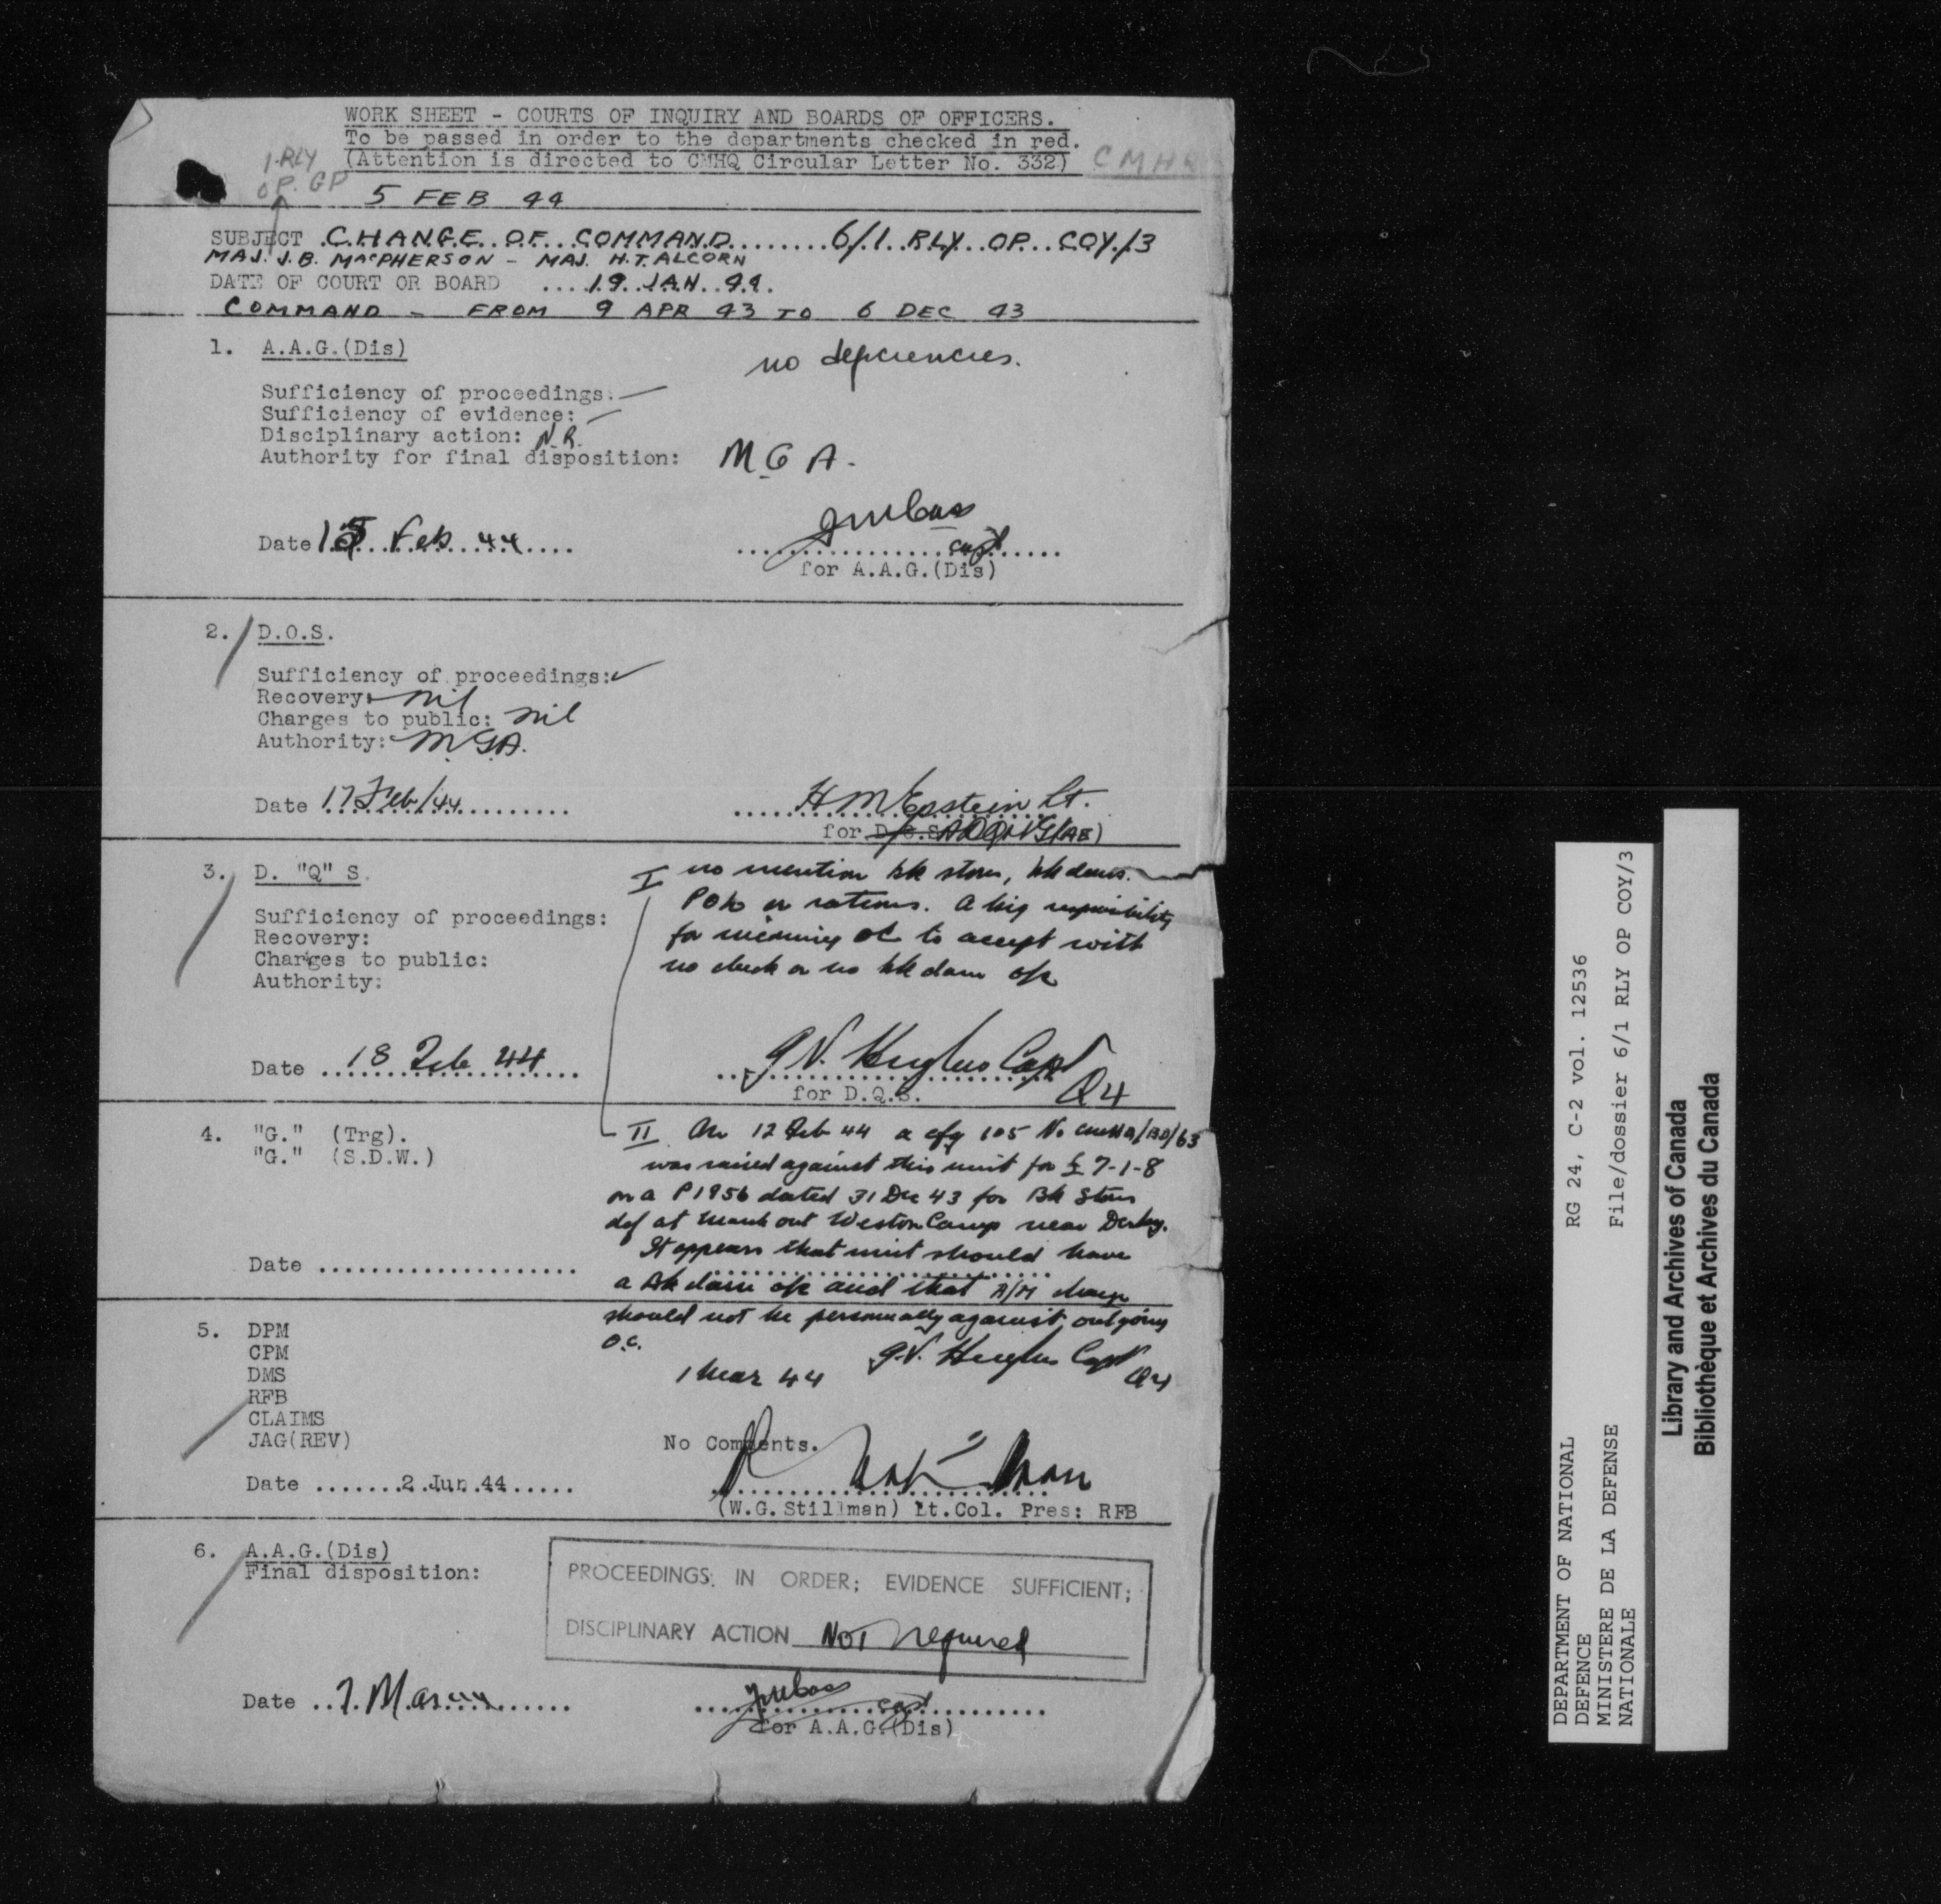 WORK SHEET - COURTS OF INQUIRY AND BOARDS OF OFFICERS.
To be passed in order to the departments checked in red.
(Attention is directed to CMHQ Circular Letter No. 332) CMHQ
1-RLY
OP. GP
5 FEB 44
SUBJECT .CHANGE..OF...COMMAND........6/1..RLY..OP...COY./3
MAJ. J.B. MACPHERSON - MAJ. H.T. ALCORN
DATE OF COURT OR BOARD ....19..JAN..44.
COMMAND - FROM 9 APR 43 TO 6 DEC 43
1. A.A.G.(Dis)
no deficiencies.
Sufficiency of proceedings:
Sufficiency of evidence:
Disciplinary action: N.R.
Authority for final disposition: M G A.
Date 15 Feb 44
Capt
for A.A.G.(Dis)
2. D.O.S.
Sufficiency of proceedings:
Recovery: nil
Charges to public: nil
Authority: M.G.A.
Date 17 Feb/44
H M Epstein Lt.
for D.O.S.
3. D. "Q" S.
I no mention bk stores, bk dams.
POL or rations. A big responsibility
for incoming OC to accept with
no check or no bk dam a/c
Sufficiency of proceedings:
Recovery:
Charges to public:
Authority:
Date ...18 Feb 44...
G.V. Hughes Capt
for D.Q.S. Q4
4. "G." (Trg).
"G." (S.D.W.)
II On 12 Feb 44 a cfq 105 No CMHQ/BD/63
was raised against this unit for £ 7-1-8
on a P1956 dated 31 Dec 43 for Bk Stores
def at march out Weston Camp near Derby.
It appears that unit should have
a Bk dam a/c and that A/M charge
should not be personally against outgoing
O.C.
Date ....................
1 Mar 44 G.V. Hughes Capt
Q4
5. DPM
CPM
DMS
RFB
CLAIMS
JAG(REV)
No Comments.
Date .......2.Jun.44.....
(W.G.Stillman) Lt.Col. Pres: RFB
6. A.A.G.(Dis)
Final disposition:
PROCEEDINGS: IN ORDER; EVIDENCE SUFFICIENT;
DISCIPLINARY ACTION Not required
Date ..7.Mar.44......
Capt
for A.A.G.(Dis)
DEPARTMENT OF NATIONAL
DEFENCE
MINISTERE DE LA DEFENSE
NATIONALE
RG 24, C-2 vol. 12536
File/dossier 6/1 RLY OP COY/3
Library and Archives of Canada
Bibliothèque et Archives du Canada